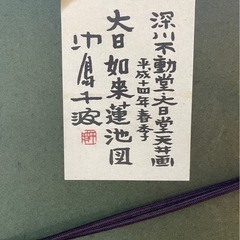 深川不動堂大日堂天井画
平成十四年春季
大日如来蓮池図
中島千波